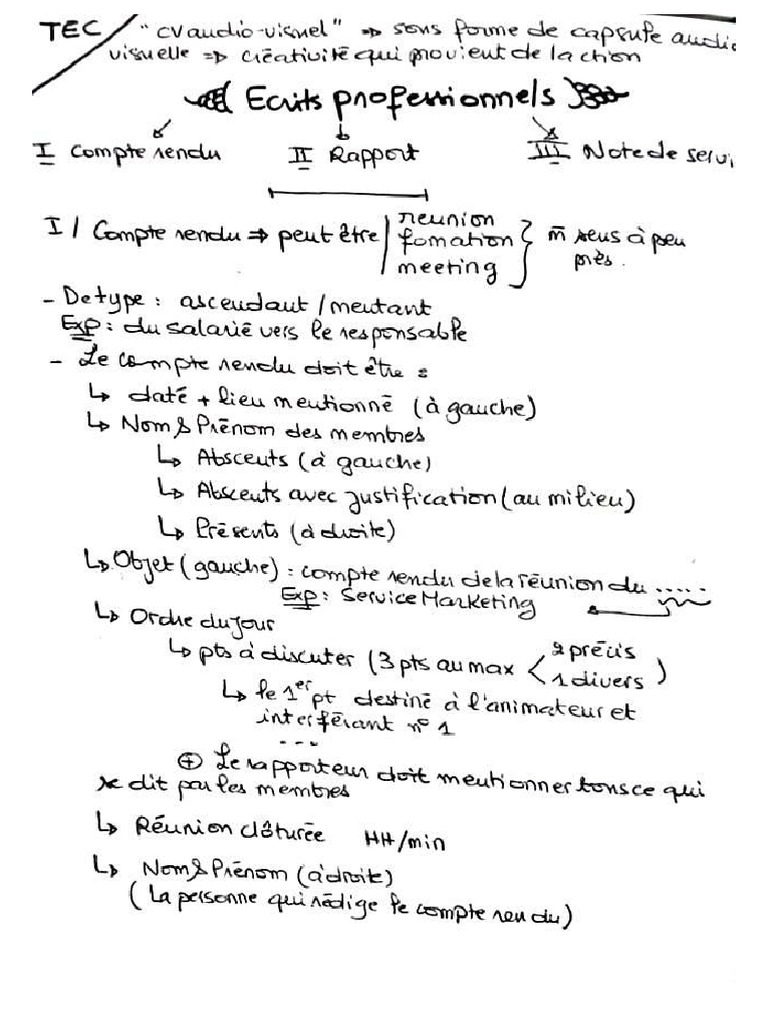 TEC / "CV audio-visuel" => sous forme de capsule audio
visuelle => créativité qui provient de la ction
Ecrits professionnels
I Compte rendu II Rapport III Note de servi
I / Compte rendu => peut être / reunion
fomation
meeting } m̄ sens à peu
près.
- De type : ascendant / montant
Exp : du salarié vers le responsable
- Le compte rendu doit être :
↳ daté + lieu mentionné (à gauche)
↳ Nom & Prénom des membres
↳ Abscents (à gauche)
↳ Abscents avec justification (au milieu)
↳ Présents (à droite)
↳ Objet (gauche) : compte rendu de la réunion du .....
Exp : Service Marketing
↳ Ordre du jour
↳ pts à discuter (3 pts au max < 2 précis
1 divers )
↳ le 1er pt destiné à l'animateur et
interférant n° 1
...
⊕ Le rapporteur doit mentionner tous ce qui
se dit par les membres
↳ Réunion clôturée HH/min
↳ Nom & Prénom (à droite)
(La personne qui rédige le compte rendu)